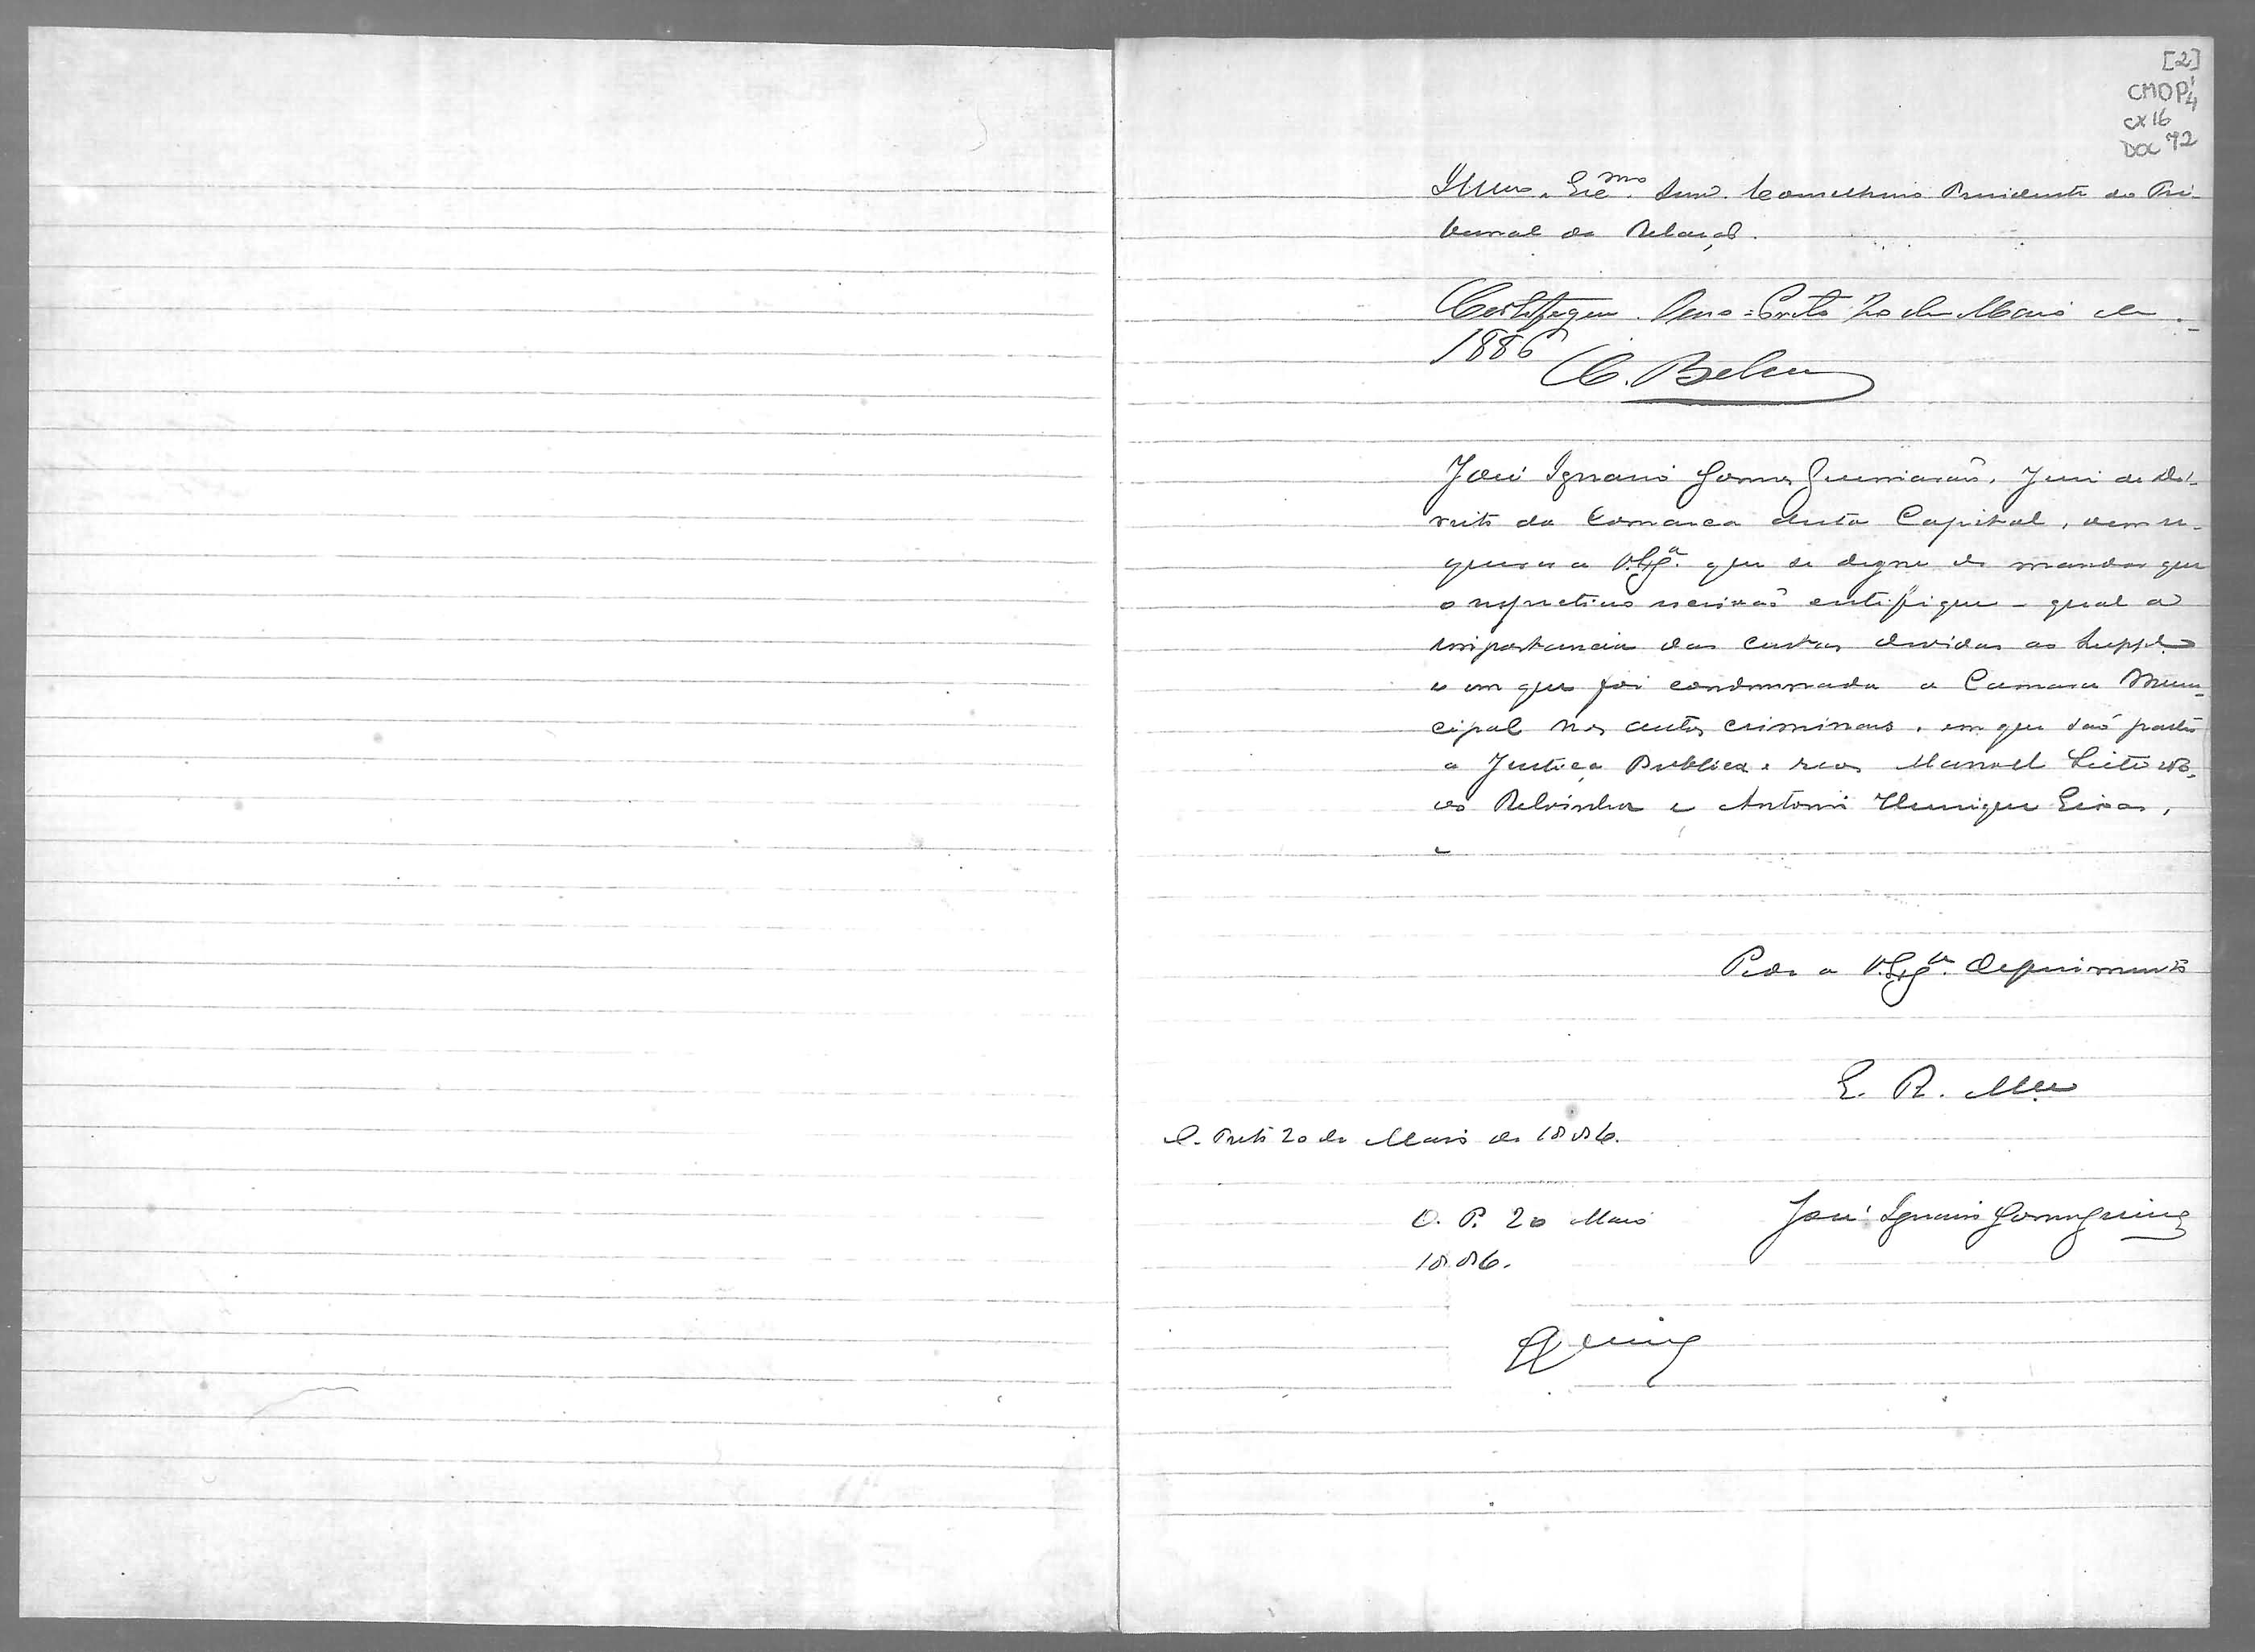 [2]
CMOP 1/4
CX 16
DOC 72
Illmo. Excmo. Snr. Conselheiro Presidente do Tri-
bunal da Relação.
Certifique. Ouro-Preto 20 de Maio de
1886
José Ignacio Gomes Guimarães, Juiz de Di-
reito da Comarca desta Capital, vem re-
querer a V. Exª. que se digne de mandar que
o respectivo escrivão certifique - qual a
importancia das custas devidas ao Suppl.e
e em que foi condemnada a Camara Muni-
cipal nos autos criminaes, em que são partes
a Justiça Publica e reos Manoel Leite
e Antonio Henrique
e
Pede a V. Exª. deferimento
E. R. Mce
O. Preto 20 de Maio de 1886.
O. P. 20 Maio
José Ignacio Gomes Guimes
1886.
GGuimes